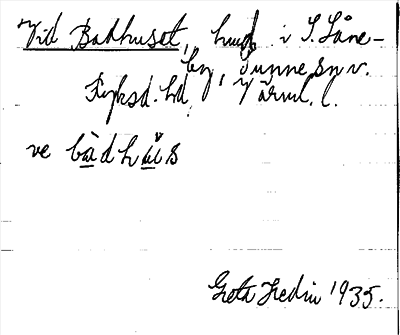 Vid Badhuset, husgr i S. Låne-
by, Sunne sn v.
Fryksd. hd, Värml. l.
ve bàdhu̇s
Greta Hedin 1935.